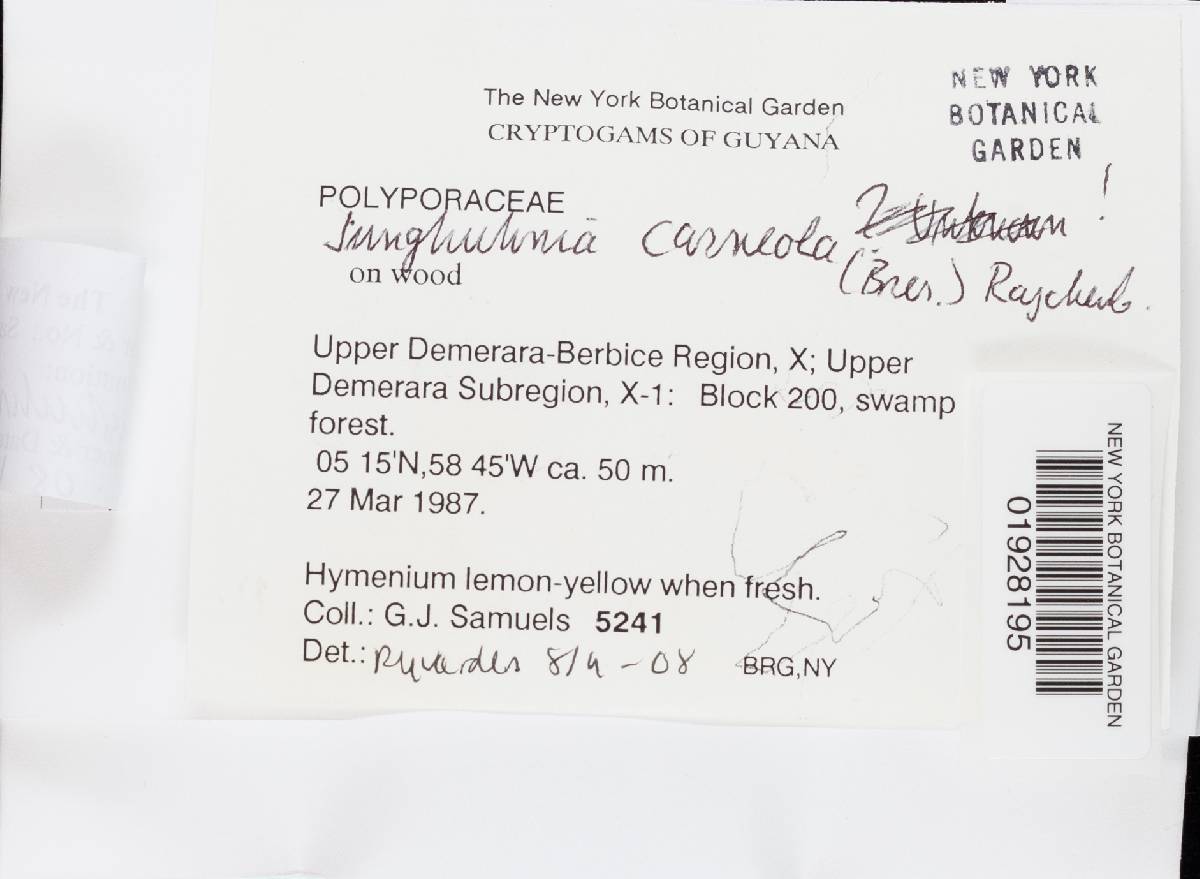 The New York Botanical Garden
CRYPTOGAMS OF GUYANA
NEW YORK
BOTANICAL
GARDEN
POLYPORACEAE
Junghuhnia carneola !
(Bres.) Rajchenb.
on wood
Upper Demerara-Berbice Region, X; Upper
Demerara Subregion, X-1: Block 200, swamp
forest.
05 15'N,58 45'W ca. 50 m.
27 Mar 1987.
Hymenium lemon-yellow when fresh.
Coll.: G.J. Samuels 5241
Det.: Ryvarden 8/9-08 BRG,NY
NEW YORK BOTANICAL GARDEN
01928195